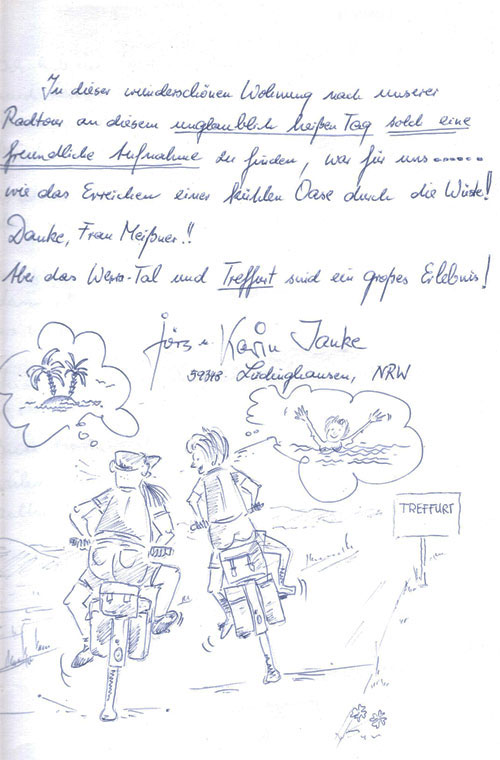 In dieser wunderschönen Wohnung nach unserer
Radtour an diesem unglaublich heißen Tag solch eine
freundliche Aufnahme zu finden, war für uns......
wie das Erreichen einer kühlen Oase durch die Wüste!
Danke, Frau Meißner!!
Aber das Werra-Tal und Treffurt sind ein großes Erlebnis!
Jörg u. Karin Janke
59348 Lüdinghausen, NRW
TREFFURT